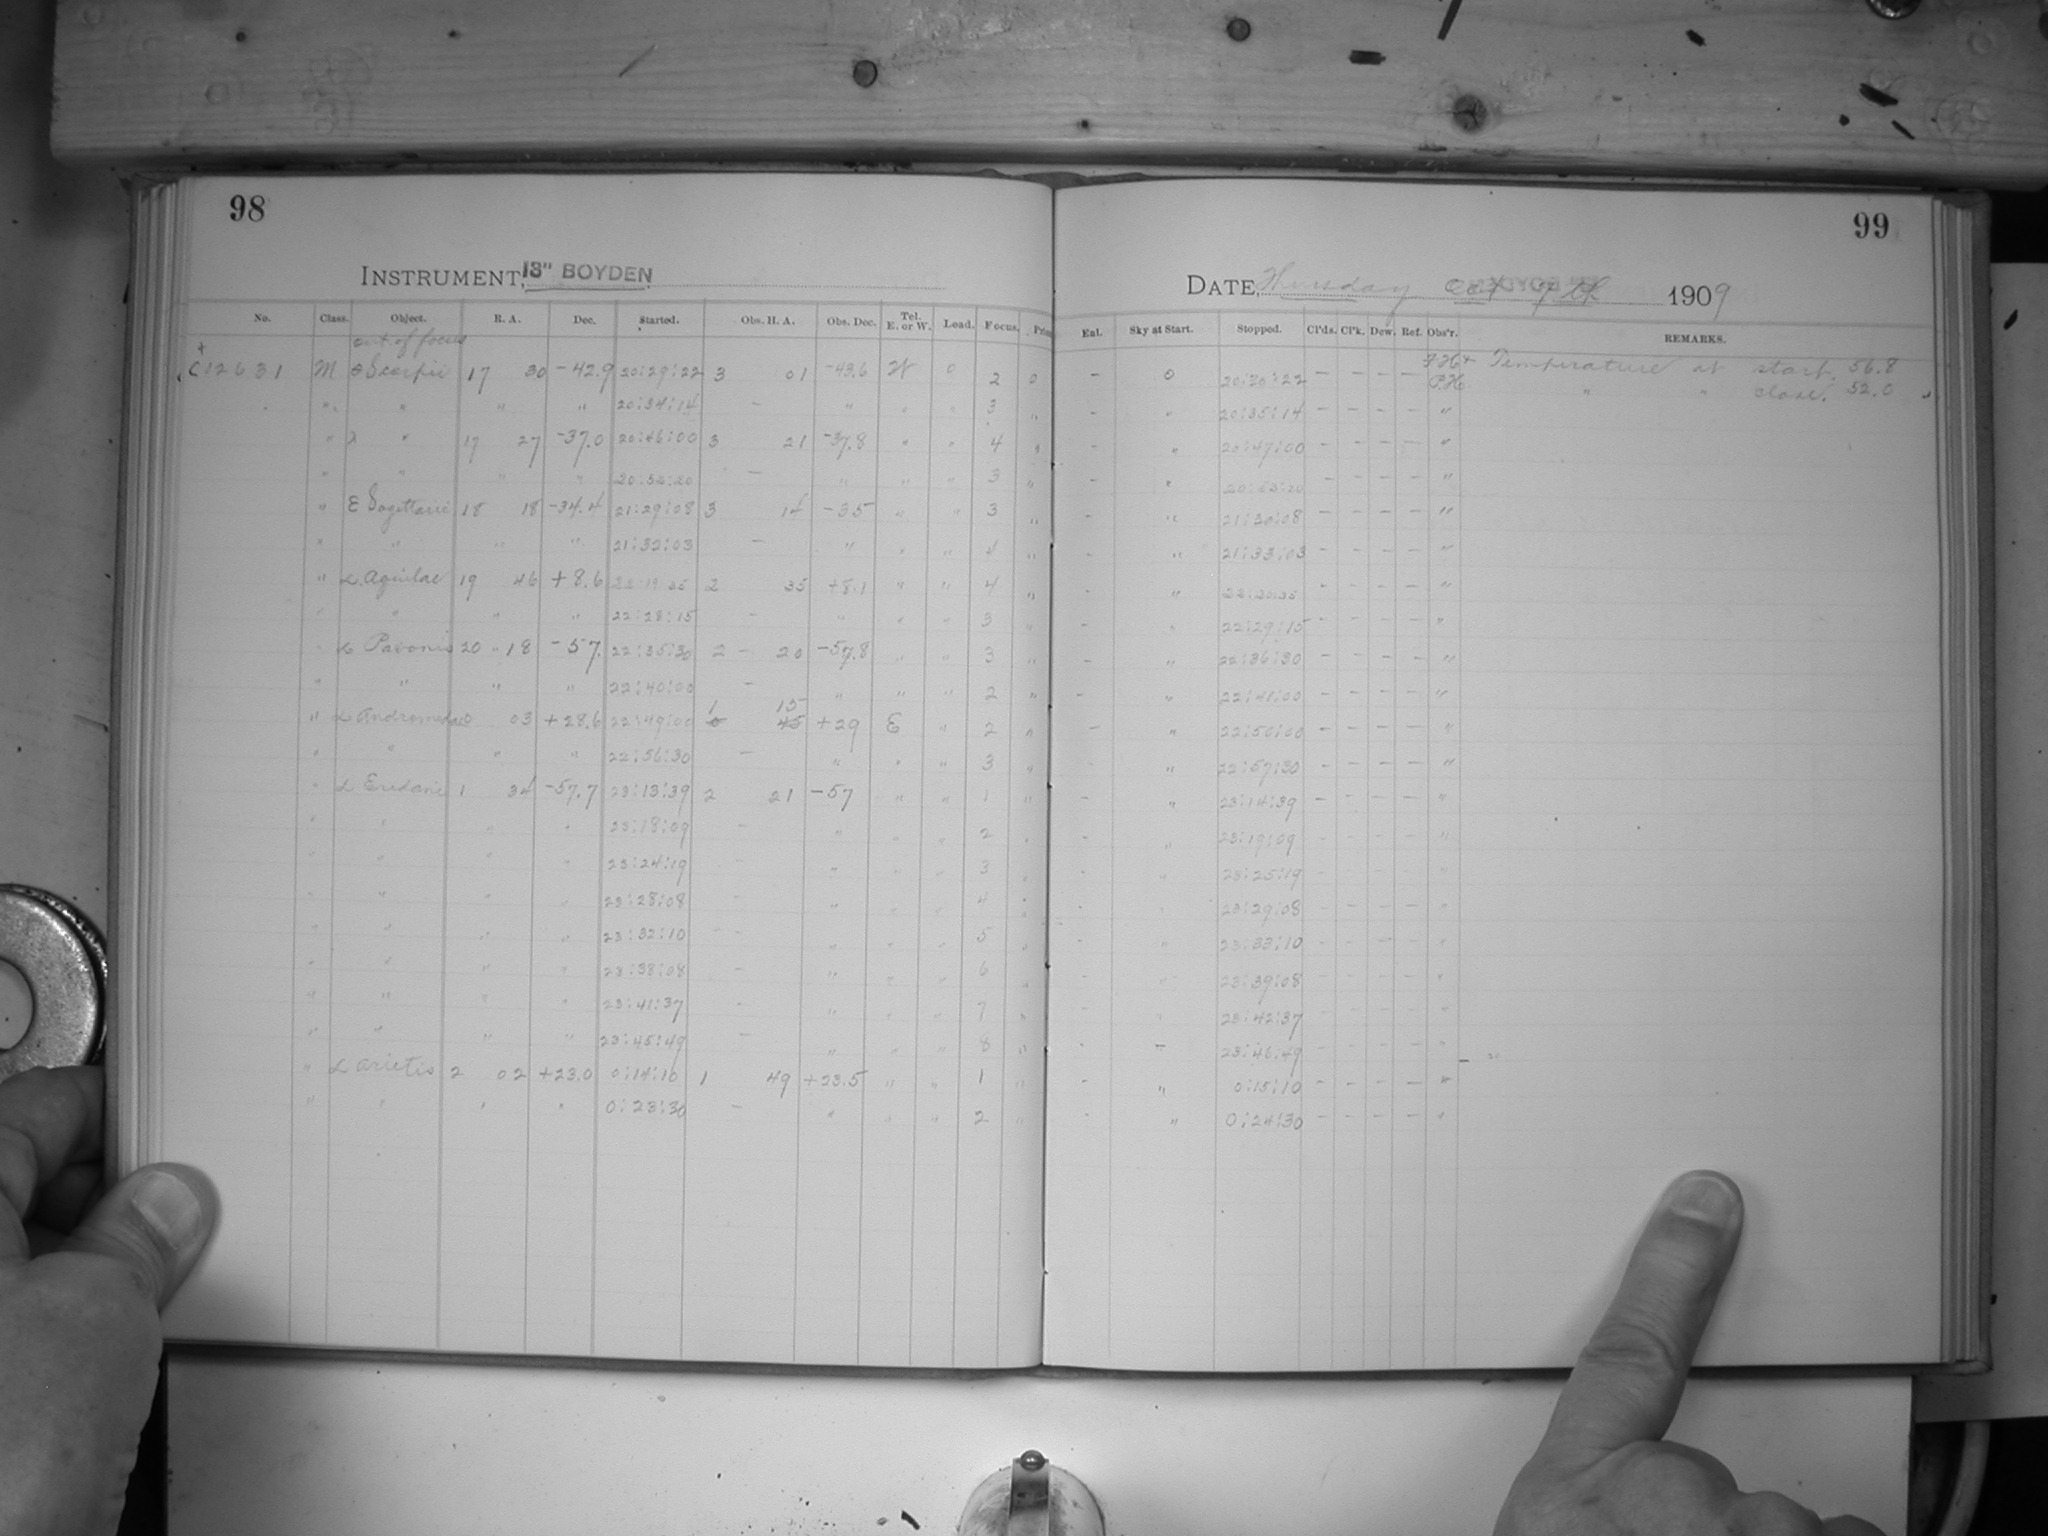 98
INSTRUMENT, 13" BOYDEN
No. Class. Object. R. A. Dec. Started. Obs. H. A. Obs. Dec. Tel. E. or W. Load. Focus.
out of focus
C12631 M Scorpii 17 30 -42.9 20:29:22 3 01 -43.6 W 0 2 0
" " " " 20:34:14 - " " " 3 "
" λ " 17 27 -37.0 20:46:00 3 21 -37.8 " " 4 "
" " " " 20:52:20 - " " " 3 "
" ε Sagittarii 18 18 -34.4 21:29:08 3 14 -35 " " 3 "
" " " " 21:32:03 - " " " 4 "
" α Aquilae 19 46 +8.6 22:19:35 2 35 +8.1 " " 4 "
" " " " 22:28:15 - " " " 3 "
" α Pavonis 20 18 -57. 22:35:30 2 20 -57.8 " " 3 "
" " " " 22:40:00 - " " " 2 "
1 15
" α Andromedae 0 03 +28.6 22:49:00 0 45 +29 E " 2 "
" " " " 22:56:30 - " " " 3 "
" α Eridani 1 34 -57.7 23:13:39 2 21 -57 " " 1 "
" " " " 23:18:09 - " " " 2 "
" " " " 23:24:19 - " " " 3 "
" " " " 23:28:08 - " " " 4 "
" " " " 23:32:10 - " " " 5 "
" " " " 23:38:08 - " " " 6 "
" " " " 23:41:37 - " " " 7 "
" " " " 23:45:49 - " " " 8 "
" α Arietis 2 02 +23.0 0:14:10 1 49 +23.5 " " 1 "
" " " " 0:23:30 - " " " 2 "
99
DATE, Thursday Oct 7th 1909
Eal. Sky at Start. Stopped. Cl'ds. Cl'k. Dew. Ref. Obs'r. REMARKS.
- 0 20:30:22 - - - - Temperature at start. 56.8
" " close. 52.0
- " 20:35:14 - - - - "
- " 20:47:00 - - - - "
- " 20:53:20 - - - - "
- " 21:30:08 - - - - "
- " 21:33:03 - - - - "
- " 22:20:35 - - - - "
- " 22:29:15 - - - - "
- " 22:36:30 - - - - "
- " 22:41:00 - - - - "
- " 22:50:00 - - - - "
- " 22:57:30 - - - - "
- " 23:14:39 - - - - "
- " 23:19:09 - - - - "
- " 23:25:19 - - - - "
- " 23:29:08 - - - - "
- " 23:33:10 - - - - "
- " 23:39:08 - - - - "
- " 23:42:37 - - - - "
- " 23:46:49 - - - - "
- " 0:15:10 - - - - "
- " 0:24:30 - - - - "